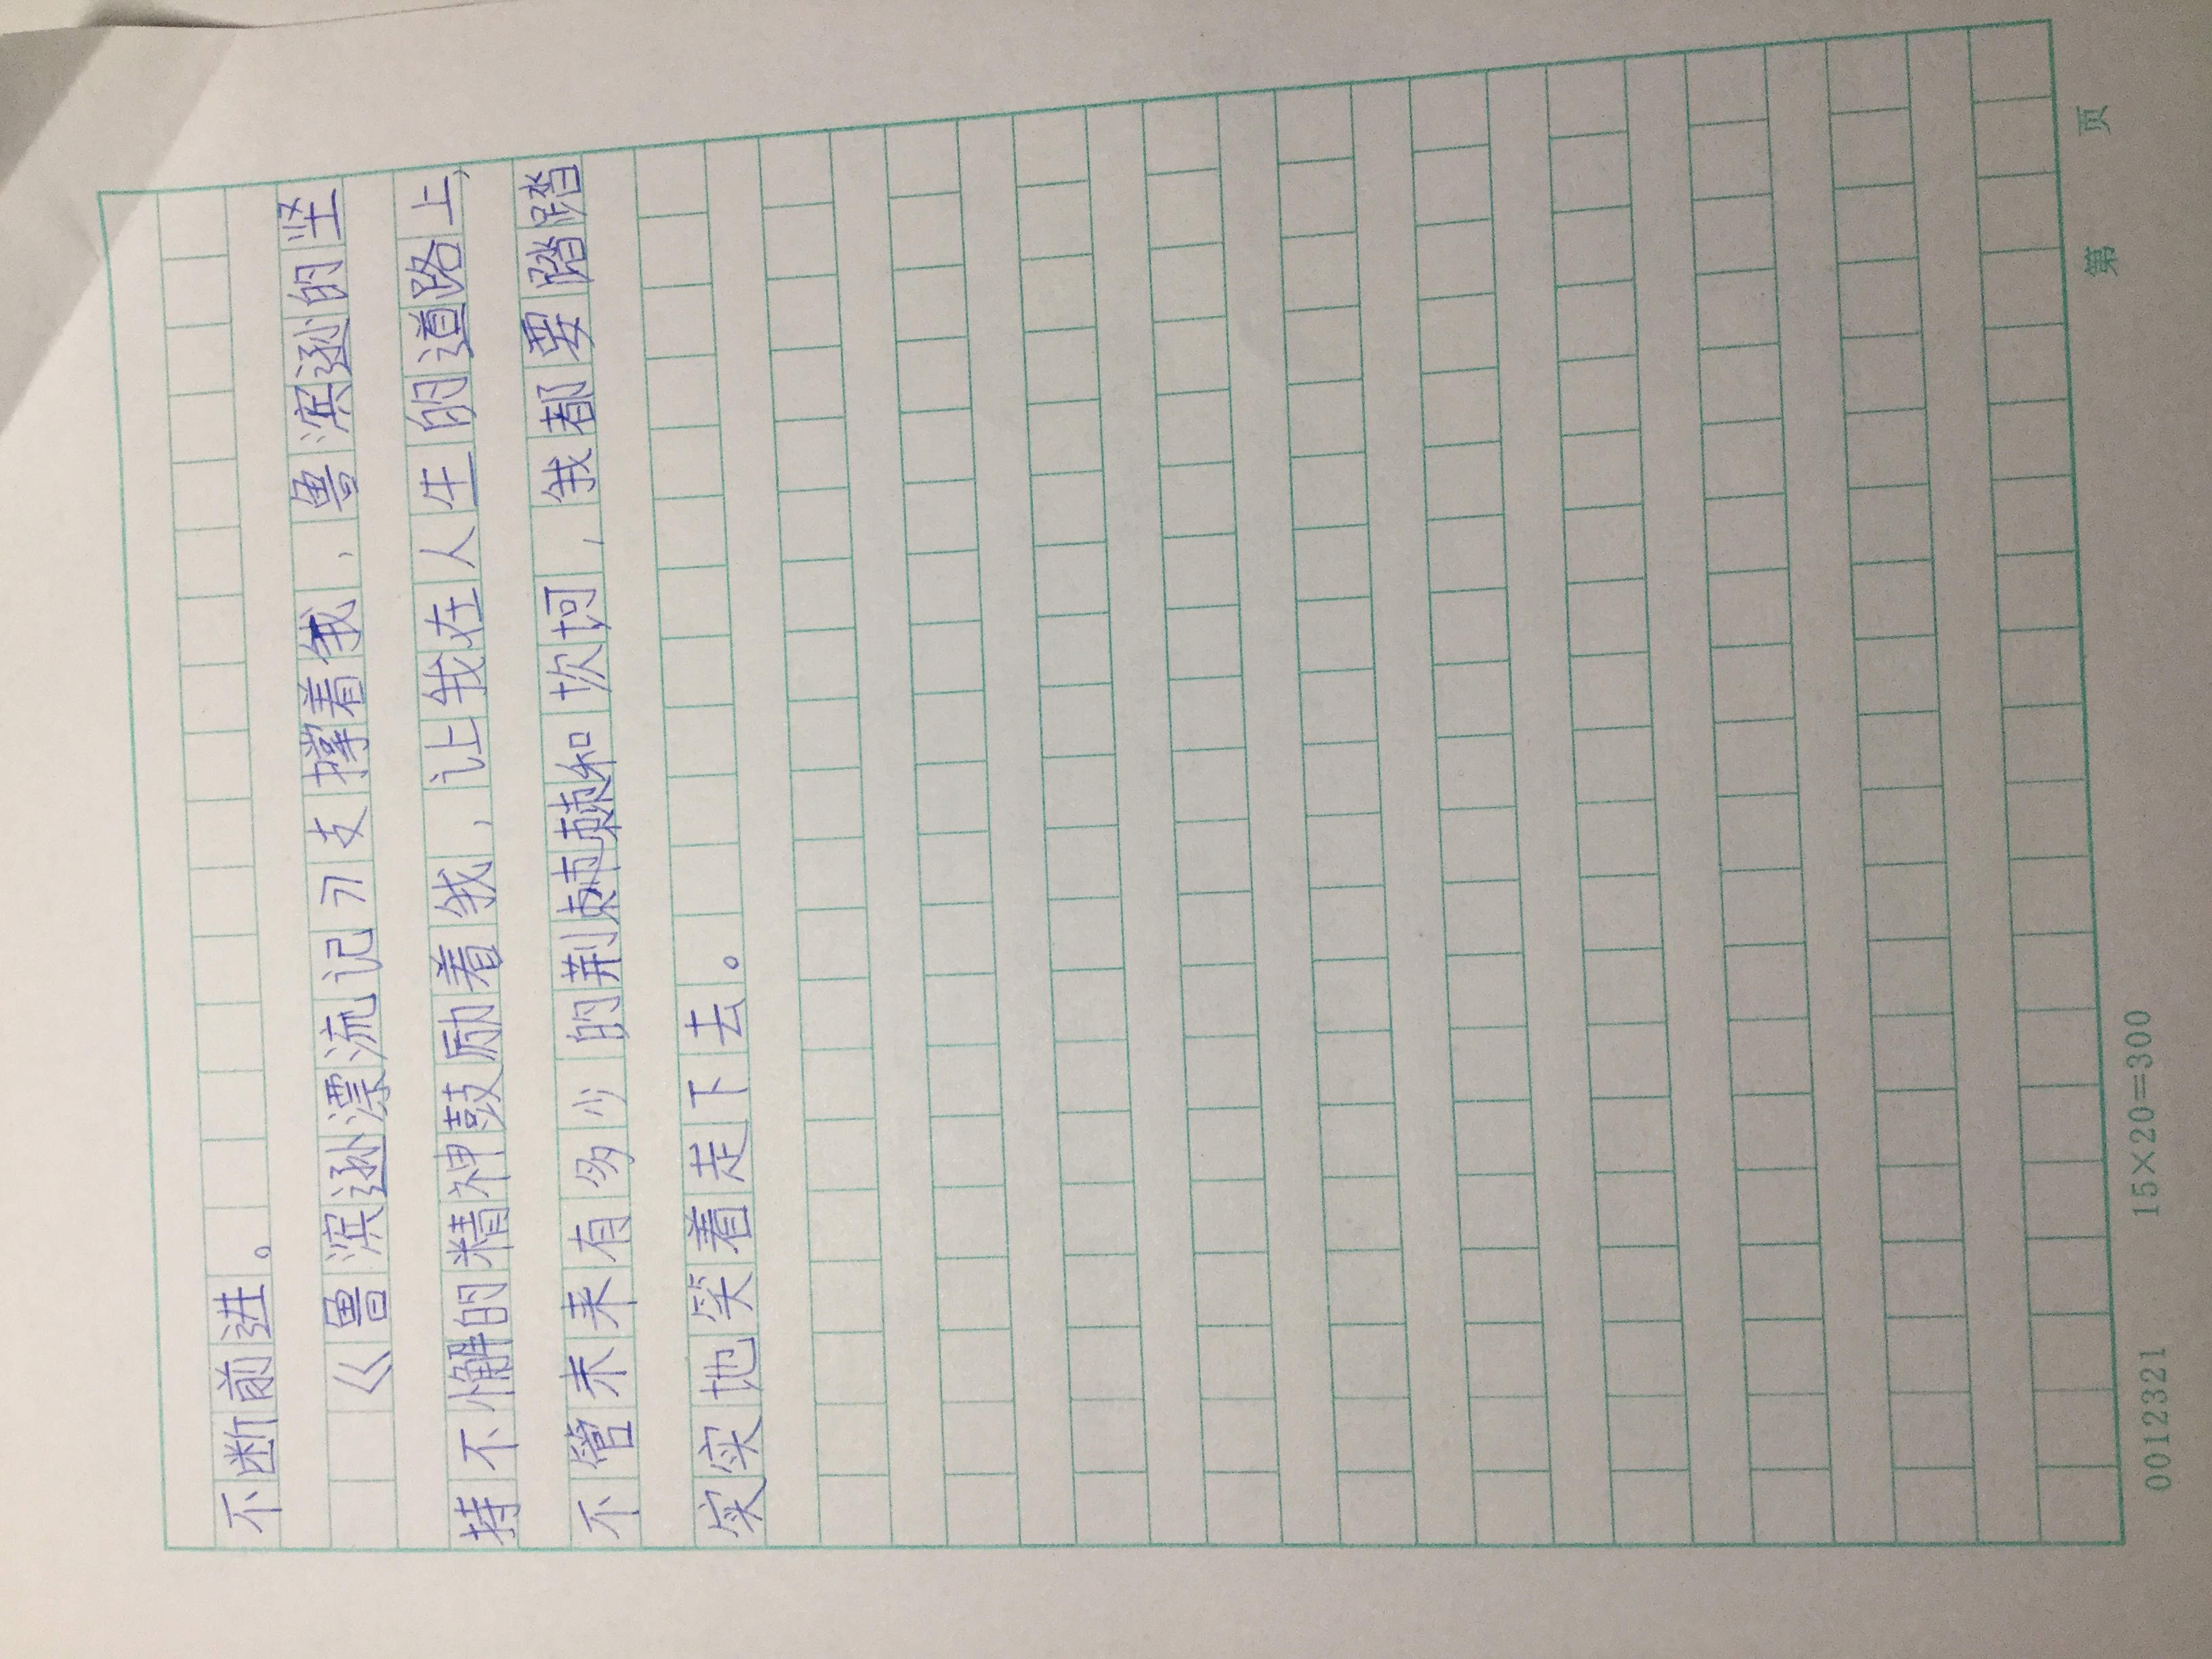 不断前进。
《鲁滨逊漂流记》支撑着我，鲁滨逊的坚
持不懈的精神鼓励着我，让我在人生的道路上，
不管未来有多少的荆棘棘和坎坷，我都要踏踏
实实地笑着走下去。
0012321 15×20=300 第 页